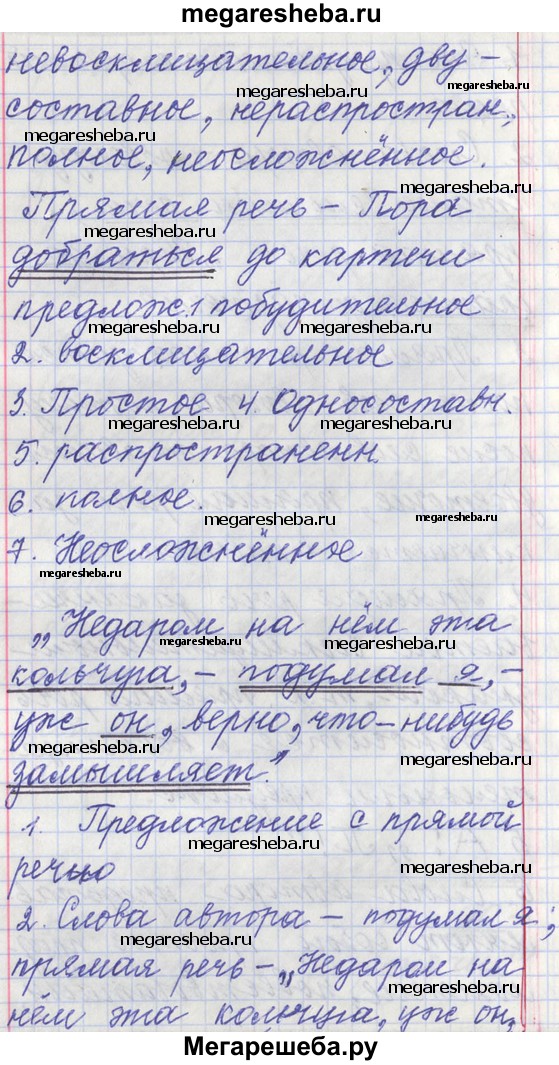 megaresheba.ru
невосклицательное, дву-
megaresheba.ru
составное, нераспростран.,
megaresheba.ru
megaresheba.ru
полное, неосложнённое.
megaresheba.ru
Прямая речь - Пора
megaresheba.ru
добраться до картечи
megaresheba.ru
предлож. 1 побудительное
megaresheba.ru
megaresheba.ru
2. восклицательное
megaresheba.ru
3. Простое 4. Односоставн.
megaresheba.ru
megaresheba.ru
5. распространенн.
megaresheba.ru
6. полное.
megaresheba.ru
7. Неосложнённое
megaresheba.ru
„Недаром на нём эта
megaresheba.ru
megaresheba.ru
кольчуга, - подумал я, -
megaresheba.ru
уж он, верно, что-нибудь
megaresheba.ru
megaresheba.ru
замышляет."
1. Предложение с прямой
megaresheba.ru
megaresheba.ru
речью
2. Слова автора - подумал я;
megaresheba.ru
прямая речь - „Недаром на
megaresheba.ru
нём эта кольчуга, уж он,
megaresheba.ru
Мегарешеба.ру